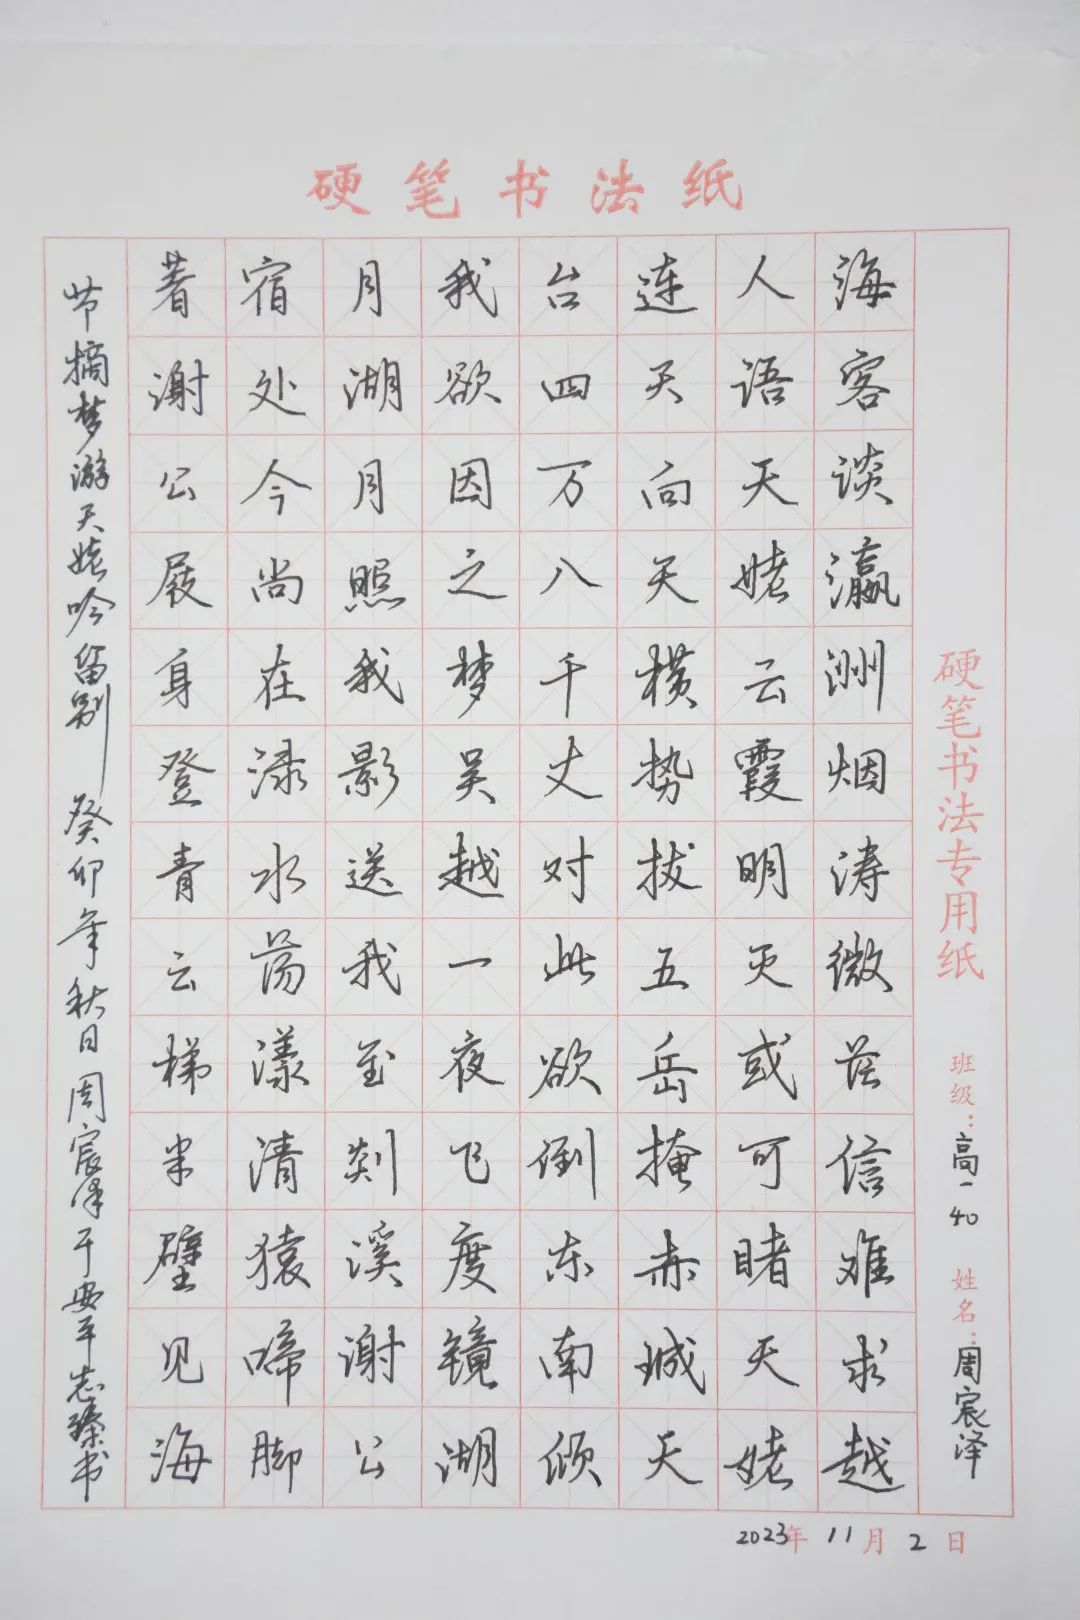 硬笔书法纸
硬笔书法专用纸 班级：高一40 姓名：周宸泽
海客谈瀛洲烟涛微茫信难求越
人语天姥云霞明灭或可睹天姥
连天向天横势拔五岳掩赤城天
台四万八千丈对此欲倒东南倾
我欲因之梦吴越一夜飞度镜湖
月湖月照我影送我至剡溪谢公
宿处今尚在渌水荡漾清猿啼脚
著谢公屐身登青云梯半壁见海
节摘梦游天姥吟留别 癸卯年秋日周宸泽于安平志臻书
2023年11月2日